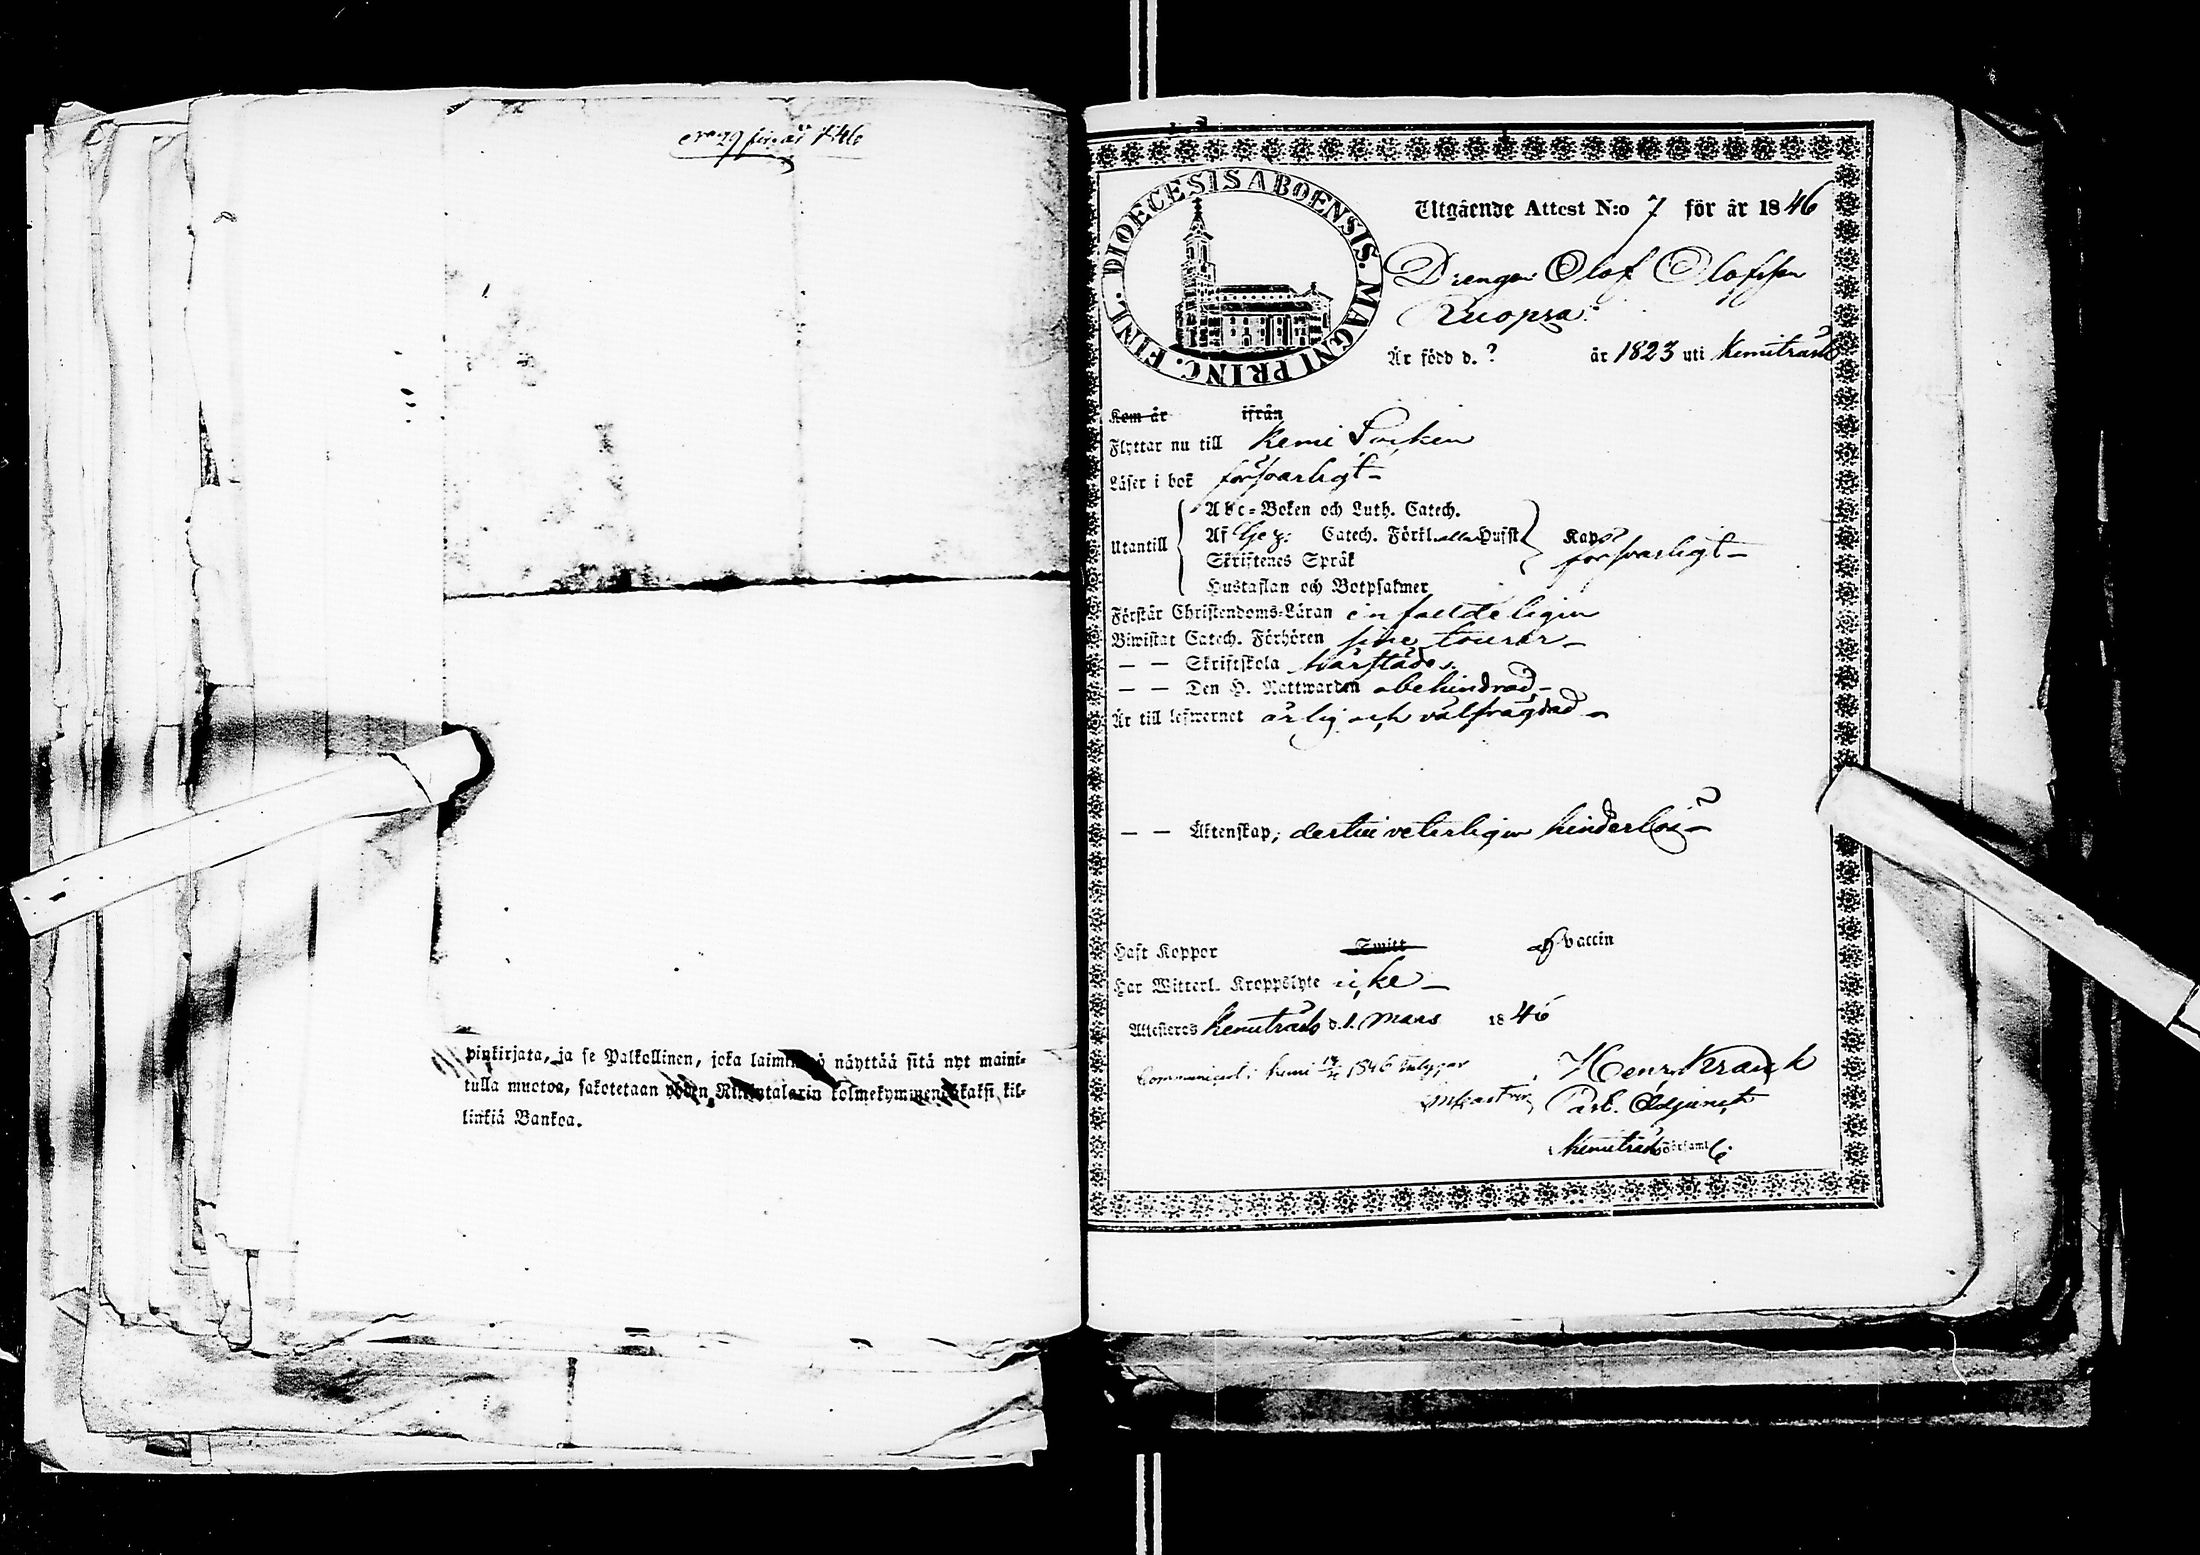 N:o 29 för år 1846
pinkirjata, ja se Palkollinen, joka näyttää sitä nyt maini-
tulla muotoa, sakotetaan yhden Riksintalarin kolmekymmenkaksi kil-
linkiä Bankoa.
DIOECESIS ABOENSIS. MAGNI PRINC. FINL.
Utgående Attest N:o 7 för år 1846
Drengen Olof Olofsson
Ruopsa
Är född d. ? år 1823 uti Kemiträsk
Kom år ifrån
Flyttar nu till Kemi Socken
Läser i bok försvarligt –
Utantill
Abc-Boken och Luth. Catech.
Af Catech. Förkl. Kap.
försvarligt –
Skriftenes Språk
Hustaflan och Botpsalmer
Förstår Christendoms-Läran enfaldeligen
Biwistat Catech. Förhören sine tourer –
— — Skriftskola härstädes.
— — Den H. Nattwarden obehindrad –
Är till lefwernet ärlig och välfrägdad –
— — Äktenskap, dertill veterligen hinderlös –
Haft Koppor Smitt vaccin
Har Witterl. Kroppslyte icke –
Attesteras Kemiträsk d. 1. Mars 1846
Communicerat i Kemi 1846 betygar
Henr. Kranck
Past. Adjunct
Kemiträsk Församl.